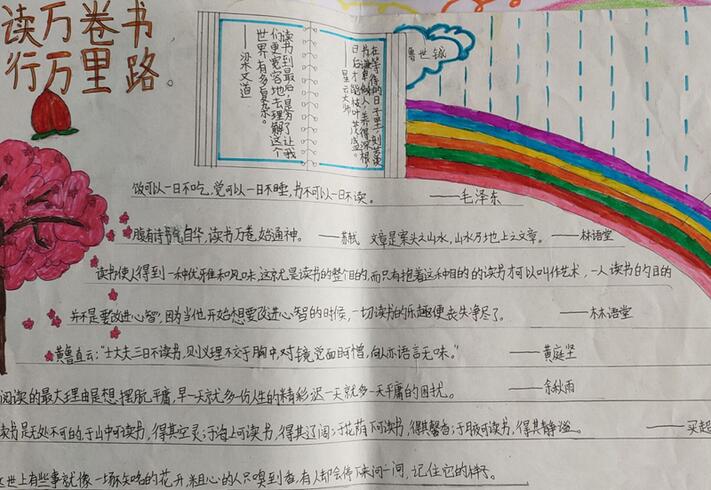 读万卷书
行万里路。
读书到最后，是为了让我
们更宽容地去理解这个
世界有多复杂。
——梁文道
在等待的日子里，刻苦读
书，谦卑做人，养得深根，
日后才能枝叶茂盛。
——星云大师
鲁世铖
饭可以一日不吃，觉可以一日不睡，书不可以一日不读。 ——毛泽东
腹有诗书气自华，读书万卷始通神。 ——苏轼 文章是案头之山水，山水乃地上之文章。 ——林语堂
读书使人得到一种优雅和风味，这就是读书的整个目的，而只有抱着这种目的的读书才可以叫作艺术，一人读书的目的
并不是要改进心智，因为当他开始想要改进心智的时候，一切读书的乐趣便丧失净尽了。 ——林语堂
黄鲁直云：“士大夫三日不读书，则义理不交于胸中，对镜觉面目可憎，向人亦语言无味。” ——黄庭坚
阅读的最大理由是想摆脱平庸，早一天就多一份人生的精彩，迟一天就多一天平庸的困扰。 ——余秋雨
读书是无处不可的，于山中可读书，得其空灵；于海上可读书，得其辽阔；于花荫下可读书，得其馨香；于月夜可读书，得其静谧。 ——买超
这世上有些事就像一场矢吹的花开，粗心的人只嗅到香，有人却会停下来问一问，记住它的样子。